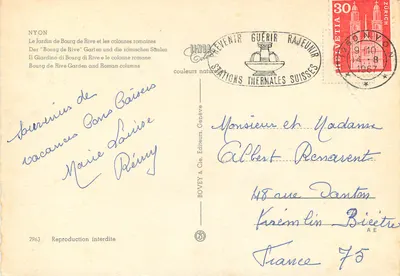 NYON
Le Jardin de Bourg de Rive et les colonnes romaines
Der "Bourg de Rive" Garten und die römischen Säulen
Il Giardino di Bourg di Rive e le colonne romane
Bourg de Rive Garden and Roman columns
couleurs
PREVENIR GUÉRIR RAJEUNIR
STATIONS THERMALES SUISSES
NYON
1967
30
ZÜRICH
HELVETIA
Souvenirs de
vacances Bons Baisers
Marie Louise
Rémy
BOVEY & Cie, Editeurs, Genève
Monsieur et Madame
Albert Renavent
48 rue Danton
Kremlin Bicêtre
France 75
7963 Reproduction interdite